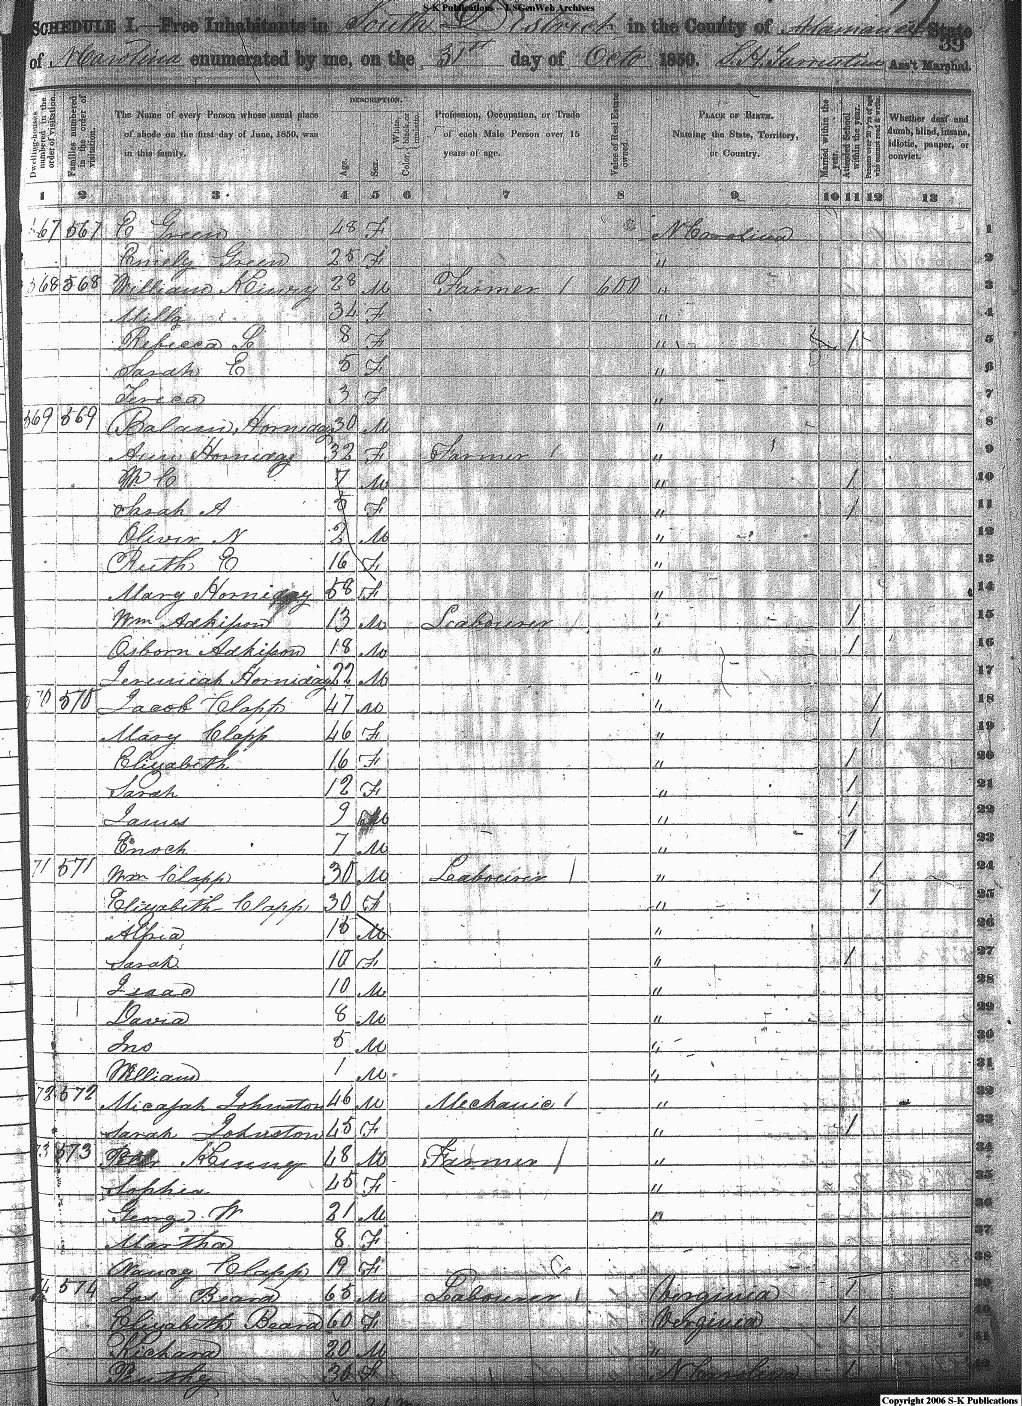 S-K Publications - USGenWeb Archives
SCHEDULE I.—Free Inhabitants in South District in the County of Alamance State
39
of N Carolina enumerated by me, on the 31st day of Octo 1850. Ass't Marshal.
Dwelling-houses numbered in the order of visitation.
Families numbered in the order of visitation.
The Name of every Person whose usual place of abode on the first day of June, 1850, was in this family.
DESCRIPTION.
Age.
Sex.
Profession, Occupation, or Trade of each Male Person over 15 years of age.
Value of Real Estate owned.
PLACE OF BIRTH. Naming the State, Territory, or Country.
Married within the year.
Attended School within the year.
Whether deaf and dumb, blind, insane, idiotic, pauper, or convict.
1 2 3 4 5 6 7 8 9 10 11 12 13
567 567 E Green 48 F N Carolina 1
Emely Green 25 F " 2
568 568 William Kinry 28 M Farmer 1 600 " 3
Milly 34 F " 4
Rebecca L 8 F " 1 5
Sarah E 5 F " 6
3 F " 7
569 569 Horniday 30 M " 8
Ann Horniday 32 F Farmer 1 " 9
M C 7 M " 1 10
Sarah A 5 F " 1 11
Oliver N 2 M " 12
Ruth E 16 F " 13
Mary Horniday 58 F " 14
Wm Adkison 13 M Labourer 1 " 1 15
Osborn Adkison 18 M " 1 16
Jeremiah Horniday 22 M " 17
570 570 Jacob Clapp 47 M " 1 18
Mary Clapp 46 F " 1 19
Elizabeth 16 F " 1 20
Sarah 12 F " 1 21
James 9 M " 1 22
Enoch 7 M " 1 23
71 571 Wm Clapp 30 M Labourer 1 " 1 24
Elizabeth Clapp 30 F " 1 25
15 M " 26
Sarah 10 F " 1 27
Isaac 10 M " 28
David 8 M " 29
Jno 5 M " 30
William 1 M " 31
72 572 Micajah Johnston 46 M Mechanic 1 " 32
Sarah Johnston 45 F " 1 33
73 573 Kenney 48 M Farmer 1 " 34
Sophia 45 F " 35
George W 21 M " 36
Martha 8 F " 37
Nancy Clapp 19 F 38
574 Jas Beard 65 M Labourer 1 Verginia 1 39
Elizabeth Beard 60 F Verginia 1 40
Richard 20 M " 41
Ruthy 30 F N Carolina 1 42
Copyright 2006 S-K Publications